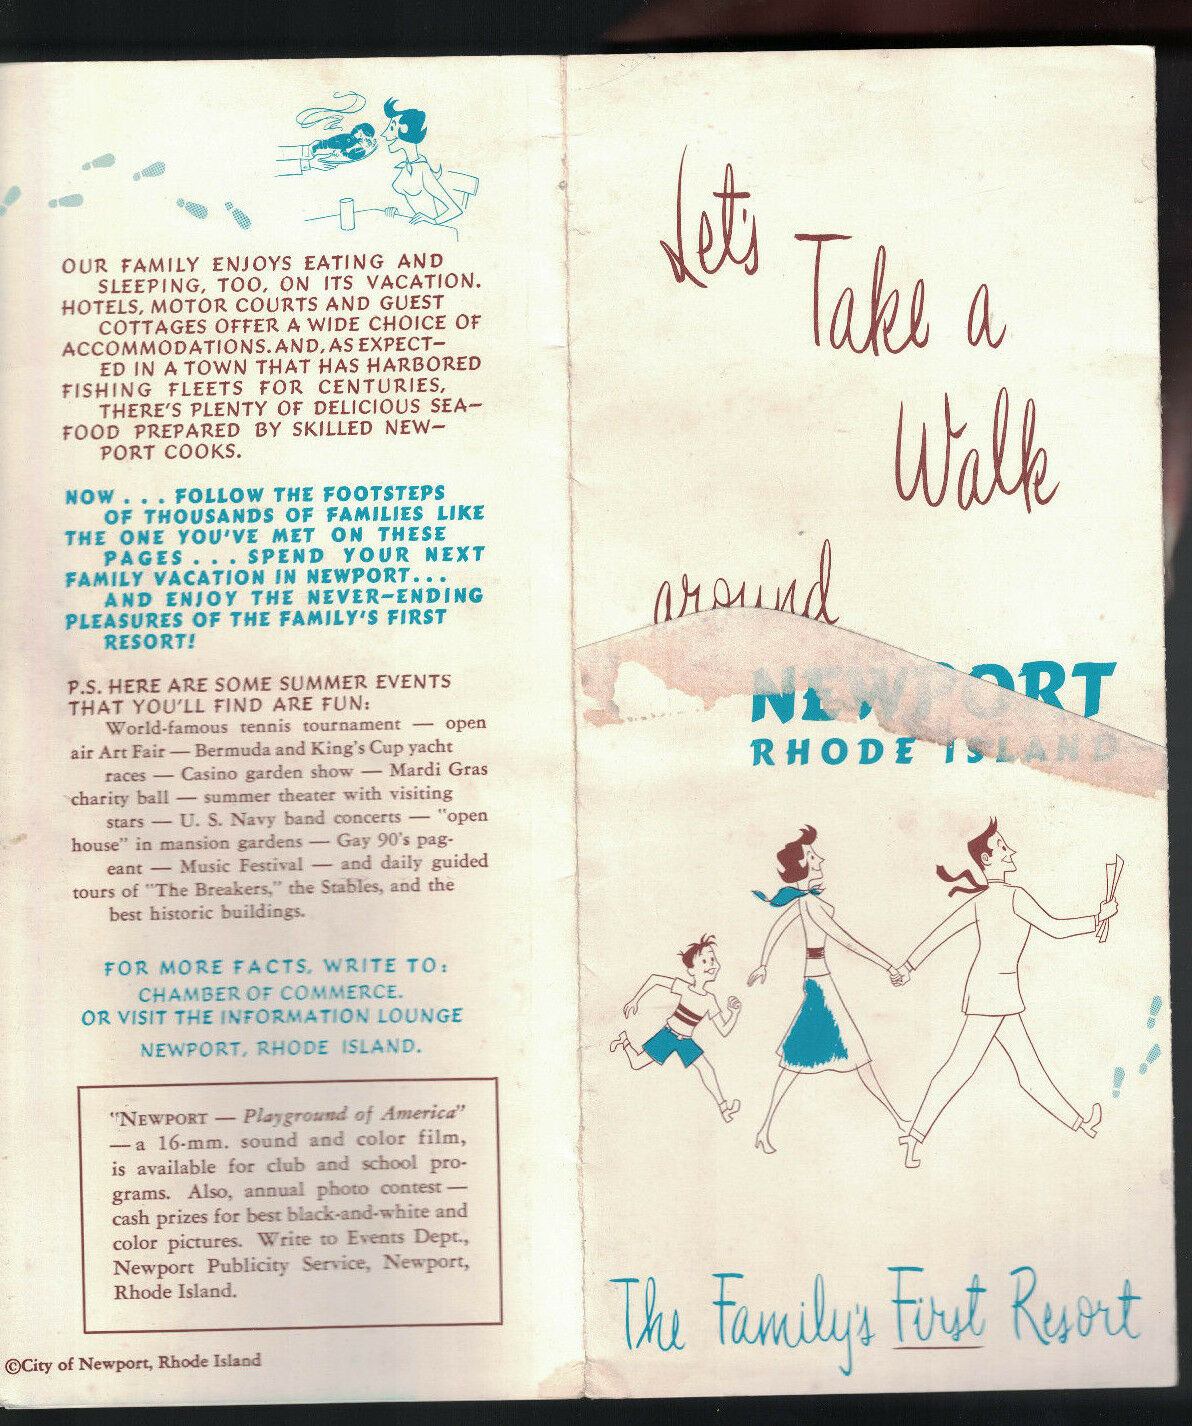 OUR FAMILY ENJOYS EATING AND
SLEEPING, TOO, ON ITS VACATION.
HOTELS, MOTOR COURTS AND GUEST
COTTAGES OFFER A WIDE CHOICE OF
ACCOMMODATIONS. AND, AS EXPECT-
ED IN A TOWN THAT HAS HARBORED
FISHING FLEETS FOR CENTURIES,
THERE'S PLENTY OF DELICIOUS SEA-
FOOD PREPARED BY SKILLED NEW-
PORT COOKS.
NOW . . . FOLLOW THE FOOTSTEPS
OF THOUSANDS OF FAMILIES LIKE
THE ONE YOU'VE MET ON THESE
PAGES . . . SPEND YOUR NEXT
FAMILY VACATION IN NEWPORT . . .
AND ENJOY THE NEVER-ENDING
PLEASURES OF THE FAMILY'S FIRST
RESORT!
P.S. HERE ARE SOME SUMMER EVENTS
THAT YOU'LL FIND ARE FUN:
World-famous tennis tournament — open
air Art Fair — Bermuda and King's Cup yacht
races — Casino garden show — Mardi Gras
charity ball — summer theater with visiting
stars — U. S. Navy band concerts — "open
house" in mansion gardens — Gay 90's pag-
eant — Music Festival — and daily guided
tours of "The Breakers," the Stables, and the
best historic buildings.
FOR MORE FACTS, WRITE TO:
CHAMBER OF COMMERCE.
OR VISIT THE INFORMATION LOUNGE
NEWPORT, RHODE ISLAND.
"NEWPORT — Playground of America"
— a 16-mm. sound and color film,
is available for club and school pro-
grams. Also, annual photo contest —
cash prizes for best black-and-white and
color pictures. Write to Events Dept.,
Newport Publicity Service, Newport,
Rhode Island.
©City of Newport, Rhode Island
Let's
Take a
Walk
around
NEWPORT
RHODE ISLAND
The Family's First Resort